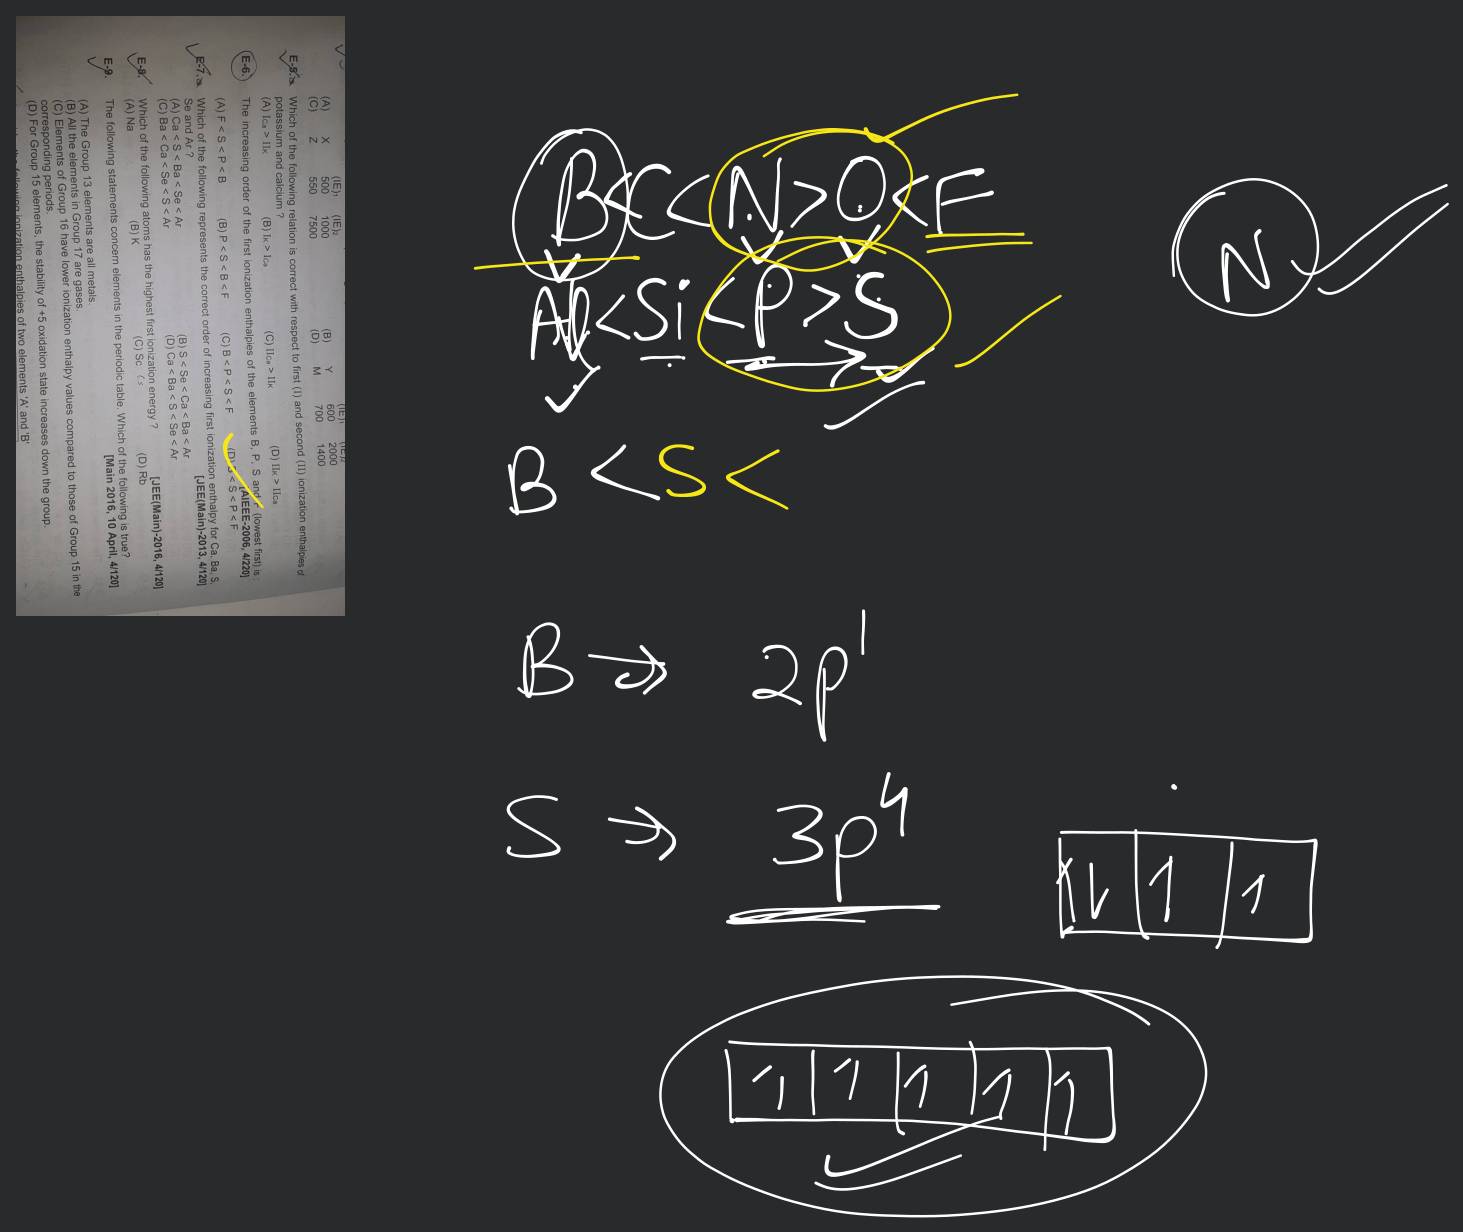 (IE)₁ (IE)₂ (IE)₁ (IE)₂
(A) X 500 1000 (B) Y 600 2000
(C) Z 550 7500 (D) M 700 1400
E-5. Which of the following relation is correct with respect to first (I) and second (II) ionization enthalpies of
potassium and calcium ?
(A) I_Ca > II_K (B) I_K > I_Ca (C) II_Ca > II_K (D) II_K > II_Ca
E-6. The increasing order of the first ionization enthalpies of the elements B, P, S and F (lowest first) is :
[AIEEE-2006, 4/220]
(A) F < S < P < B (B) P < S < B < F (C) B < P < S < F (D) B < S < P < F
E-7. Which of the following represents the correct order of increasing first ionization enthalpy for Ca, Ba, S,
Se and Ar ? [JEE(Main)-2013, 4/120]
(A) Ca < S < Ba < Se < Ar (B) S < Se < Ca < Ba < Ar
(C) Ba < Ca < Se < S < Ar (D) Ca < Ba < S < Se < Ar
E-8. Which of the following atoms has the highest first ionization energy ? [JEE(Main)-2016, 4/120]
(A) Na (B) K (C) Sc (D) Rb
E-9. The following statements concern elements in the periodic table. Which of the following is true?
[Main 2016, 10 April, 4/120]
(A) The Group 13 elements are all metals.
(B) All the elements in Group 17 are gases.
(C) Elements of Group 16 have lower ionization enthalpy values compared to those of Group 15 in the
corresponding periods.
(D) For Group 15 elements, the stability of +5 oxidation state increases down the group.
ionization enthalpies of two elements 'A' and 'B'
B < C < N > O < F
N
Al < Si < P > S
B < S <
B → 2p¹
S → 3p⁴
1 1
1 1 1 1 1